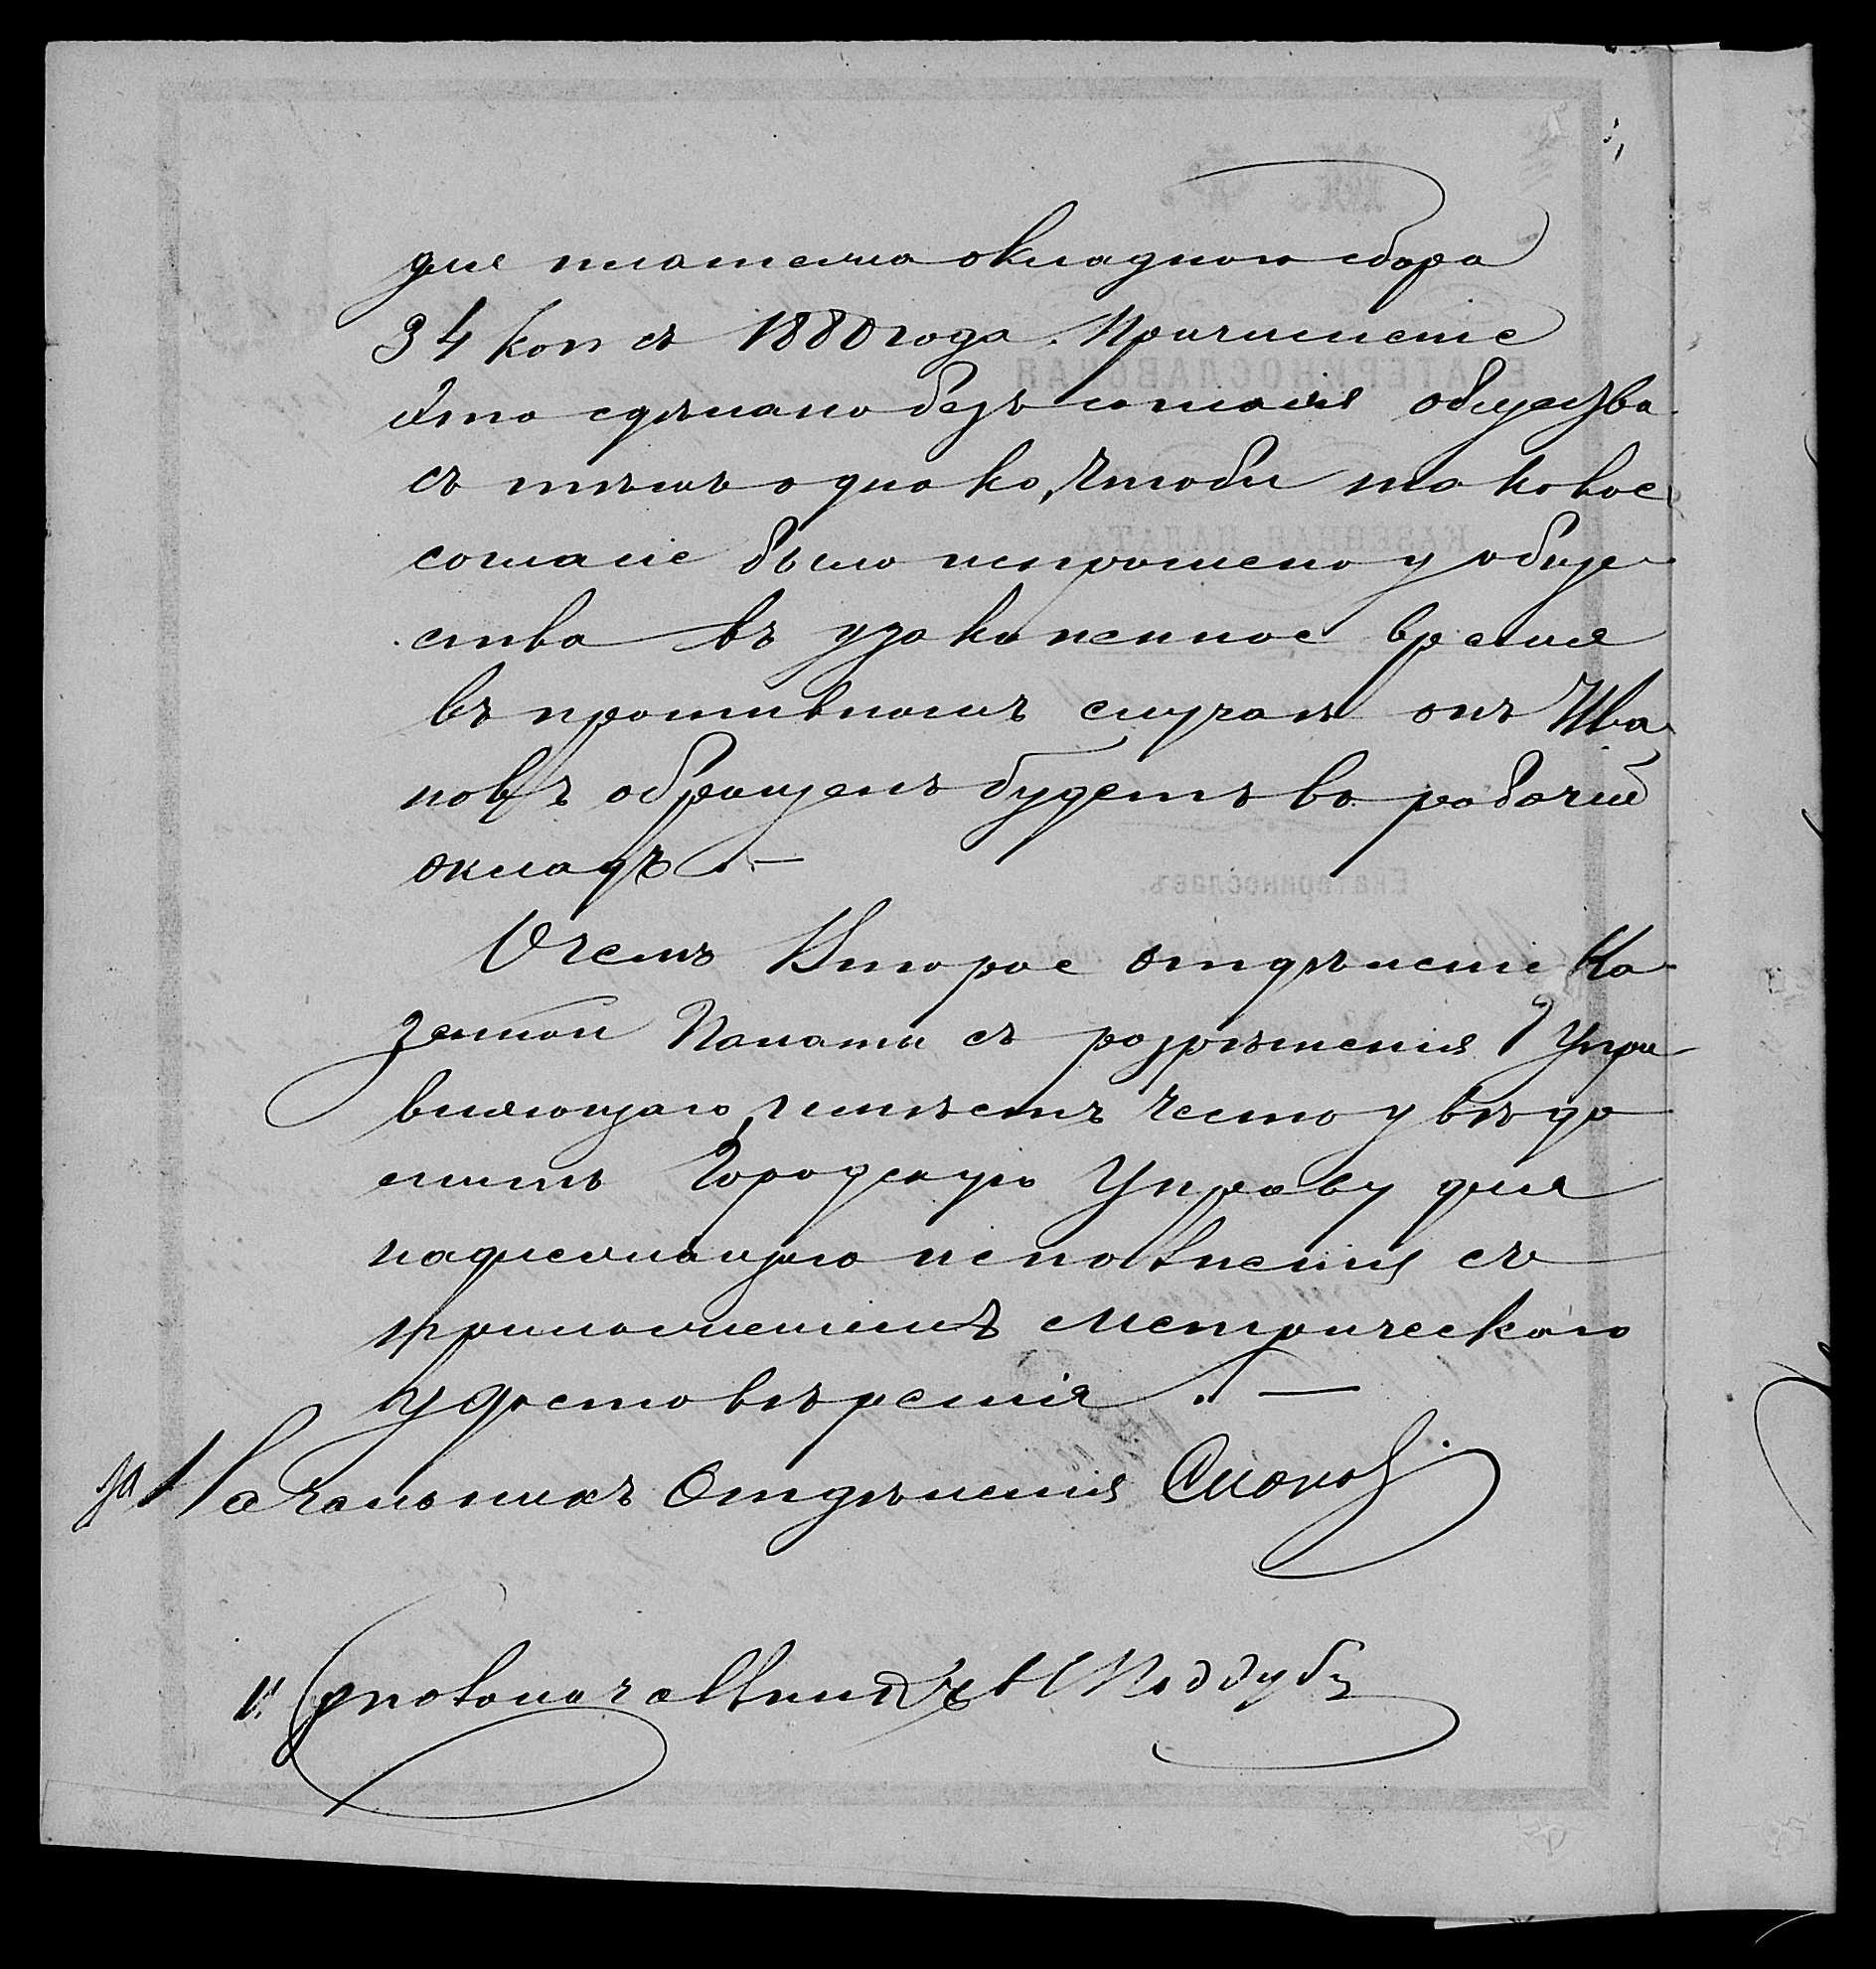 для платежа окладного сбора
34 коп съ 1880 года. Причисленіе
это сдѣлано безъ согласія общества
съ тѣмъ однако, чтобы таковое
согласіе было испрошено у обще-
ства въ узаконенное время
въ противномъ случаѣ онъ Ива-
новъ обращенъ будетъ въ рабочій
окладъ. —
О чемъ Второе отдѣленіе Ка-
зенной Палаты съ разрѣшенія Г Упра-
вляющаго, имѣетъ честь увѣдо-
мить Городскую Управу для
надлежащаго исполненія съ
приложеніемъ метрическаго
удостовѣренія. —
за Начальникъ Отдѣленія
И. Столоначальника Н Поддубн
ЕКАТЕРИНОСЛАВСКАЯ
КАЗЕННАЯ ПАЛАТА.
Екатеринославъ.